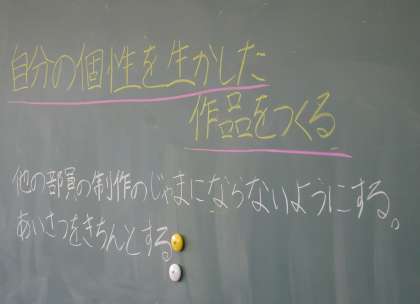 自分の個性を生かした
作品をつくる
他の部員の制作のじゃまにならないようにする。
あいさつをきちんとする。